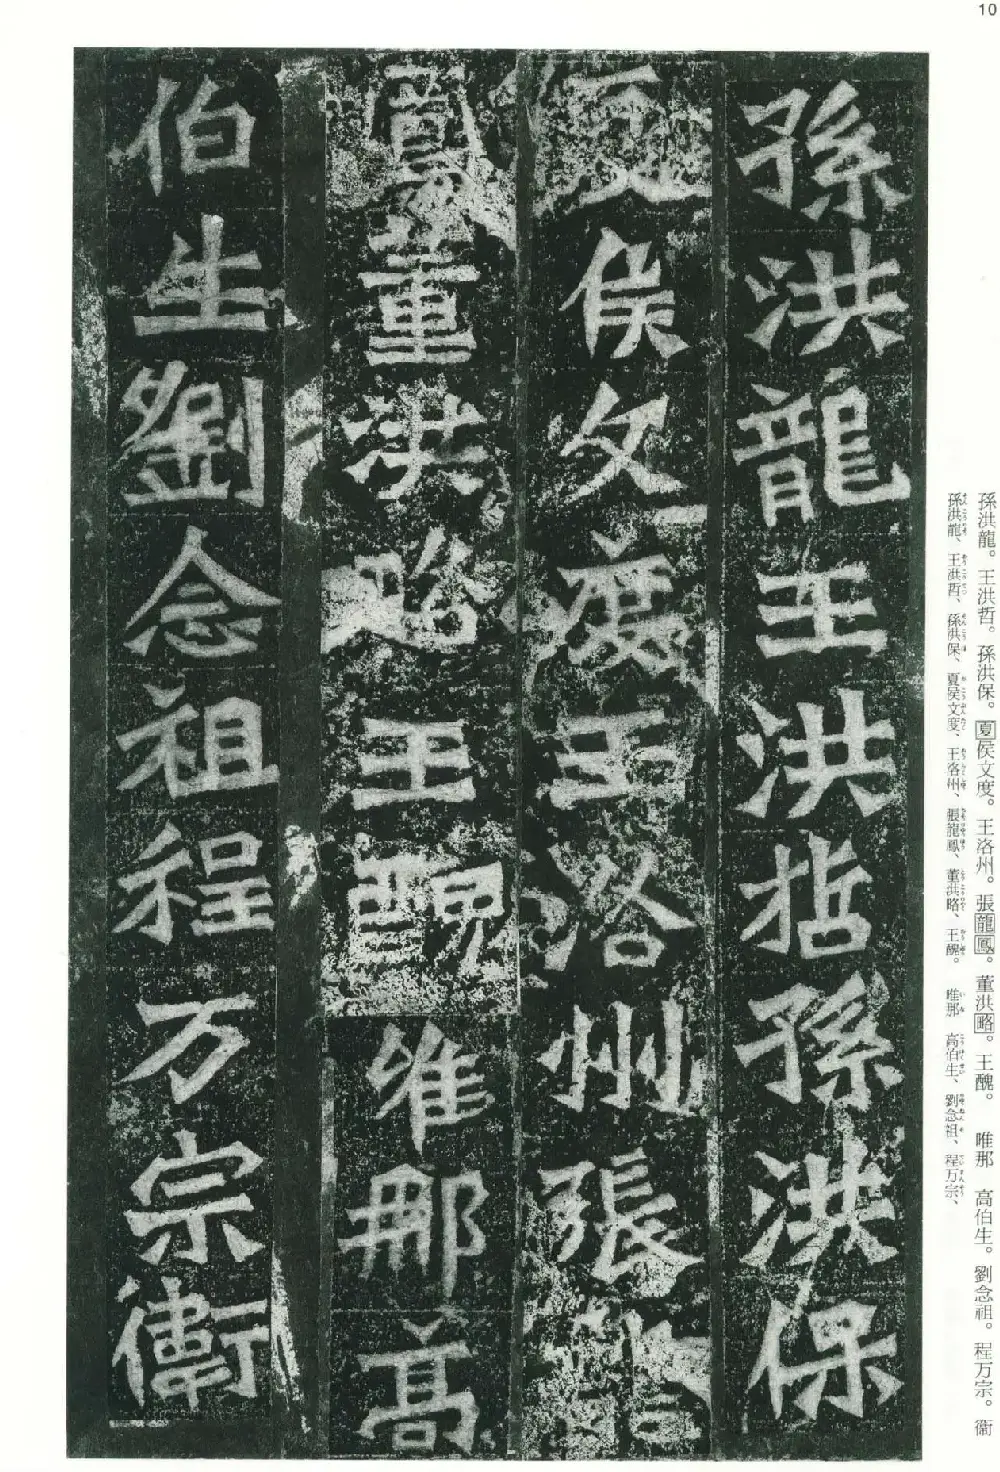 10
孫洪龍王洪哲孫洪保
夏侯文度王洛州張龍
鳳董洪略王醜唯那高
伯生劉念祖程万宗衞
孫洪龍。王洪哲。孫洪保。夏侯文度。王洛州。張龍鳳。董洪略。王醜。　唯那　高伯生。劉念祖。程万宗。衞
孫洪龍、王洪哲、孫洪保、夏侯文度、王洛州、張龍鳳、董洪略、王醜。　唯那　高伯生、劉念祖、程万宗、